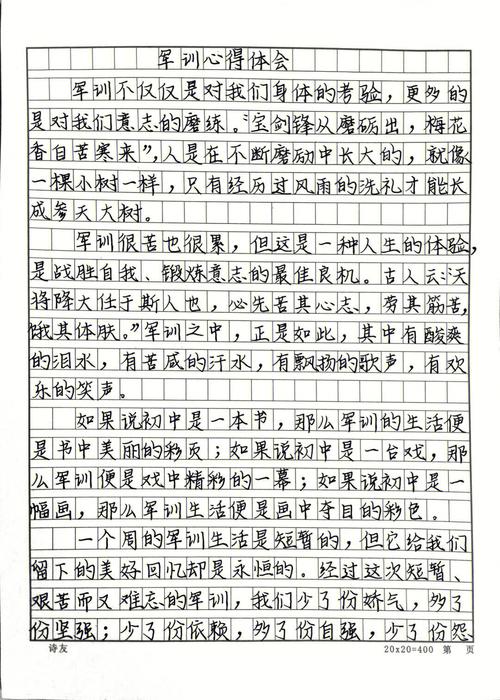 军训心得体会
军训不仅仅是对我们身体的考验，更多的
是对我们意志的磨练。“宝剑锋从磨砺出，梅花
香自苦寒来”，人是在不断磨励中长大的，就像
一棵小树一样，只有经历过风雨的洗礼才能长
成参天大树。
军训很苦也很累，但这是一种人生的体验，
是战胜自我、锻炼意志的最佳良机。古人云：“天
将降大任于斯人也，必先苦其心志，劳其筋苦，
饿其体肤。”军训之中，正是如此，其中有酸爽
的泪水，有苦咸的汗水，有飘扬的歌声，有欢
乐的笑声。
如果说初中是一本书，那么军训的生活便
是书中美丽的彩页；如果说初中是一台戏，那
么军训便是戏中精彩的一幕；如果说初中是一
幅画，那么军训生活便是画中夺目的彩色。
一个周的军训生活是短暂的，但它给我们
留下的美好回忆却是永恒的。经过这次短暂、
艰苦而又难忘的军训，我们少了份娇气，多了
份坚强；少了份依赖，多了份自强，少了份怨
诗友 20x20=400 第 页